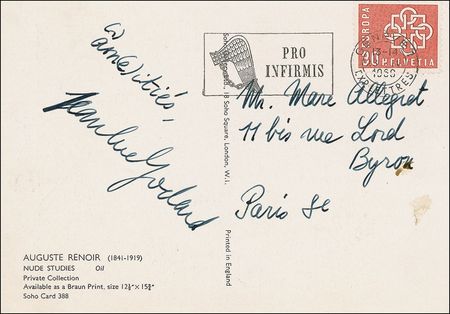 amitiés,
Jean Luc Godard
PRO
INFIRMIS
EUROPA
HELVETIA
Mr. Marc Allegret
11 bis rue Lord
Byron
Paris 8e
Soho Square, London, W.I.
Printed in England
AUGUSTE RENOIR (1841-1919)
NUDE STUDIES Oil
Private Collection
Available as a Braun Print, size 12⅛" × 15¾"
Soho Card 388